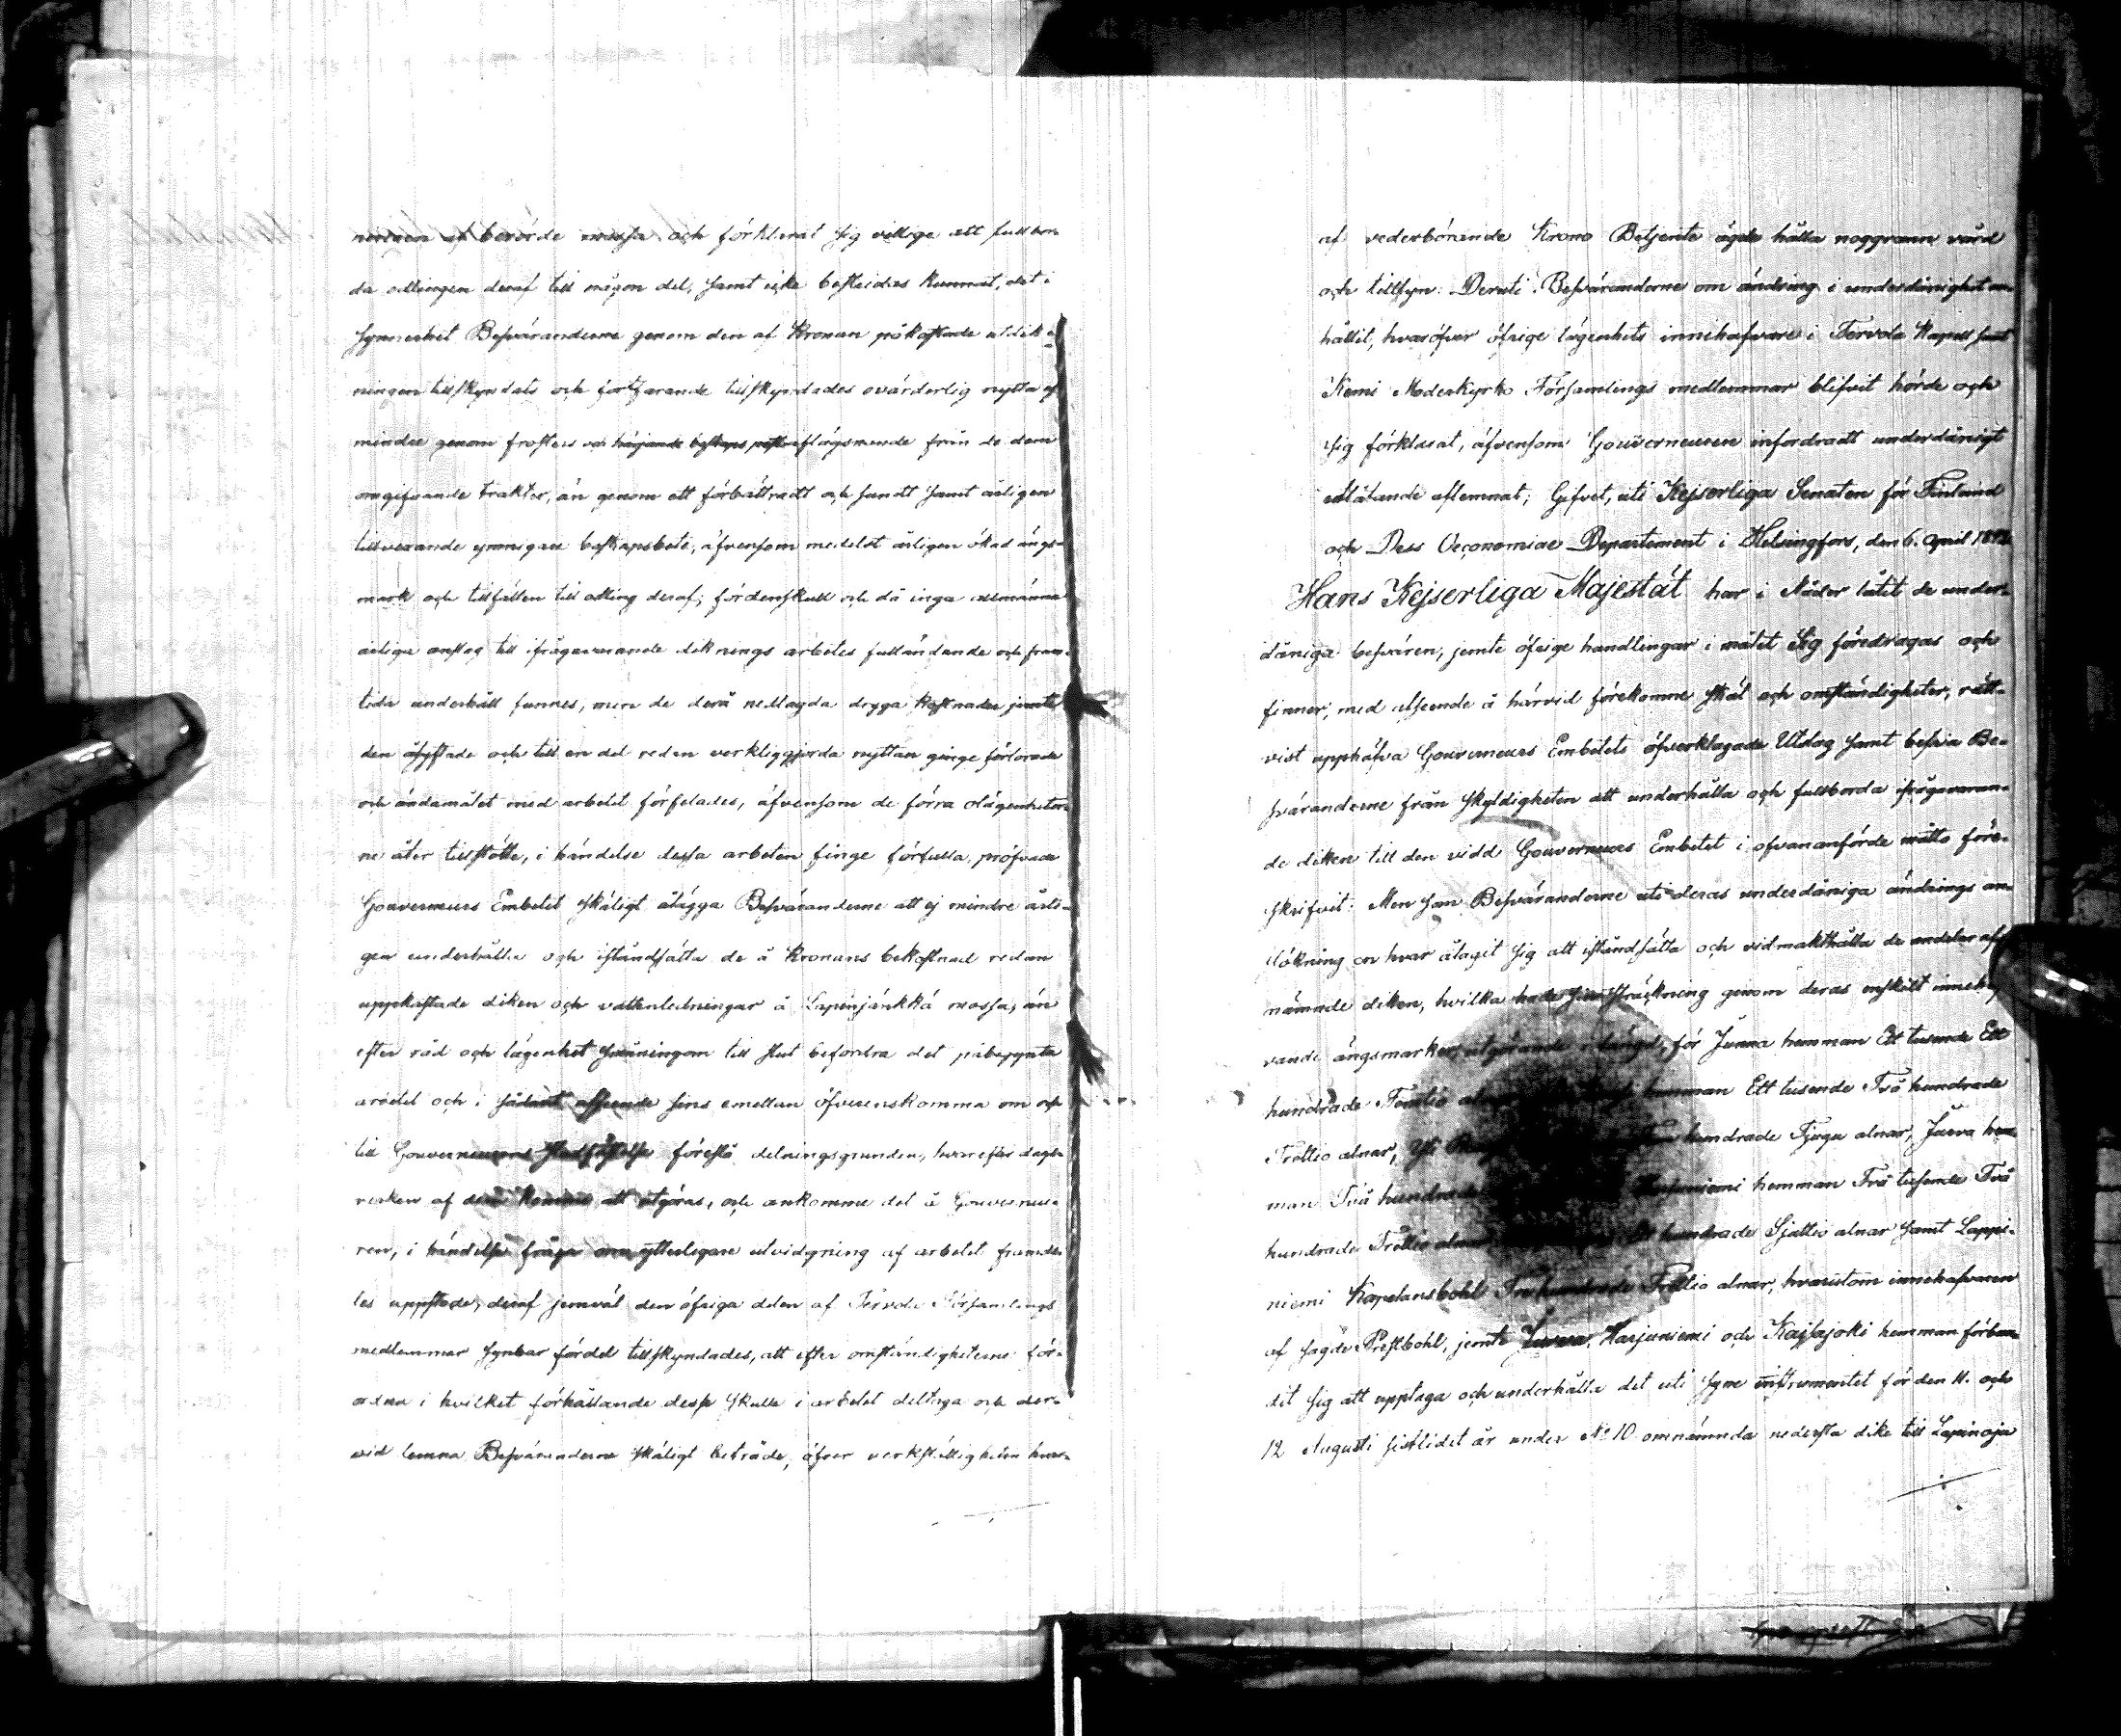 ningen af berörde mossa och förklarat sig villige att fullbor-
da odlingen deraf till någon del, samt icke bestridas kunnat, det i
synnerhet Besväranderne genom den af Kronan påkostade utdik-
ningen tillskyndats och fortfarande tillskyndades ovärderlig nytta ej
mindre genom frostens aflägsnande från de dem
omgifvande trakter, än genom ett förbättradt och sundt samt årligen
tillvexande ymnigare boskapsbete, äfvensom medelst årligen ökad ängs-
mark och tillfällen till odling deraf; fördenskull och då inga allmänna
årliga anslag till ifrågavarande diknings arbetes fulländande och fram-
tida underhåll funnes, men de derå nedlagda dryga kostnader jemte
den åsyftade och till en del redan verkliggjorda nyttan ginge förlorade
och ändamålet med arbetet förfelades, äfvensom de förra olägenheter-
ne åter tillstötte, i händelse dessa arbeten finge förfalla, pröfvade
Gouverneurs Embetet skäligt ålägga Besväranderne att ej mindre årli-
gen underhålla och iståndsätta de å Kronans bekostnad redan
uppkastade diken och vattenledningar å Lapinjänkkä mossa, än
efter råd och lägenhet till slut befordra det påbegynta
arbetet och i sådant afseende sins emellan öfverenskomma om och
till Gouverneurens stadfästelse föreslå delningsgrunden, hvarefter dags-
verken af dem komme att utgöras, och ankomme det å Gouverneu-
ren, i händelse fråga om ytterligare utvidgning af arbetet framde-
les uppstode, deraf jemväl den öfriga delen af Tervola Församlings
medlemmar synbar fördel tillskyndades, att efter omständigheterne för-
ordna i hvilket förhållande desse skulle i arbetet deltaga och der-
vid lemna Besväranderne skäligt beträde, öfver verkställigheten hvar-
af vederbörande Krono Betjente ägde hålla noggrann vård
och tillsyn: Deruti Besväranderne om ändring i underdånighet an-
hållit, hvaröfver öfrige lägenhets innehafvare i Tervola Kapell samt
Kemi Moderkyrko Församlings medlemmar blifvit hörde och
sig förklarat, äfvensom Gouverneuren infordradt underdånigt
utlåtande aflemnat; Gifvet, uti Kejserliga Senaten för Finland
och Dess Oeconomiae Departement i Helsingfors, den 6. April
Hans Kejserliga Majestät har i Nåder låtit de under-
dåniga besvären, jemte öfrige handlingar i målet Sig föredragas och
finner, med afseende å härvid förekomne skäl och omständigheter, rätt-
vist upphäfva Gouverneurs Embetets öfverklagade Utslag samt befria Be-
sväranderne från skyldigheten att underhålla och fullborda ifrågavaran-
de diken till den vidd Gouverneurs Embetet i ofvananförde måtto före-
skrifvit: Men som Besväranderne uti deras underdåniga ändrings an-
sökning en hvar åtagit sig att iståndsätta och vidmakthålla de andelar af
nämnde diken, hvilka hade sin sträckning genom deras enskilt inneha-
vande ängsmarker, utgörande i längd, för Junna hemman Ett tusende Ett
hundrade Femtio hemman Ett tusende Två hundrade
Trettio alnar, hundrade Tjugu alnar, Juova hem-
man Två hundrade Harjuniemi hemman Två tusende Två
hundrade Trettio alnar hundrade Sjuttio alnar samt Lappi-
niemi Kapelansbohl Trettio alnar, hvarutom innehafvaren
af sagde Prestbohl, jemte Juova, Harjuniemi och Kaisajoki hemman förbun-
dit sig att upptaga och underhålla det uti Syne instrumentet för den 11. och
12 Augusti sistlidet år under No 10 omnämnda nedersta dike till Lapinoja